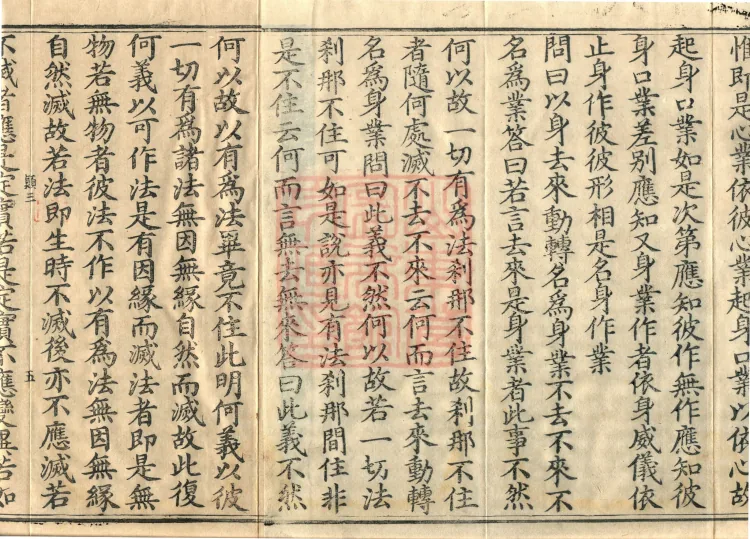 惟即是心業依彼心業起身口業以依心故
起身口業如是次第應知彼作無作應知彼
身口業差別應知又身業作者依身威儀依
止身作彼彼形相是名身作業
問曰以身去來動轉名為身業不去不來不
名為業答曰若言去來是身業者此事不然
何以故一切有為法剎那不住故剎那不住
者隨何處滅不去不來云何而言去來動轉
名為身業問曰此義不然何以故若一切法
剎那不住可如是說亦見有法剎那間住非
是不住云何而言無去無來答曰此義不然
何以故以有為法畢竟不住此明何義以彼
一切有為諸法無因無緣自然而滅故此復
何義以可作法是有因緣而滅法者即是無
物若無物者彼法不作以有為法無因無緣
自然滅故若法即生時不滅後亦不應滅若
顯三 五
不滅者應是定實若是定實不應變異若如